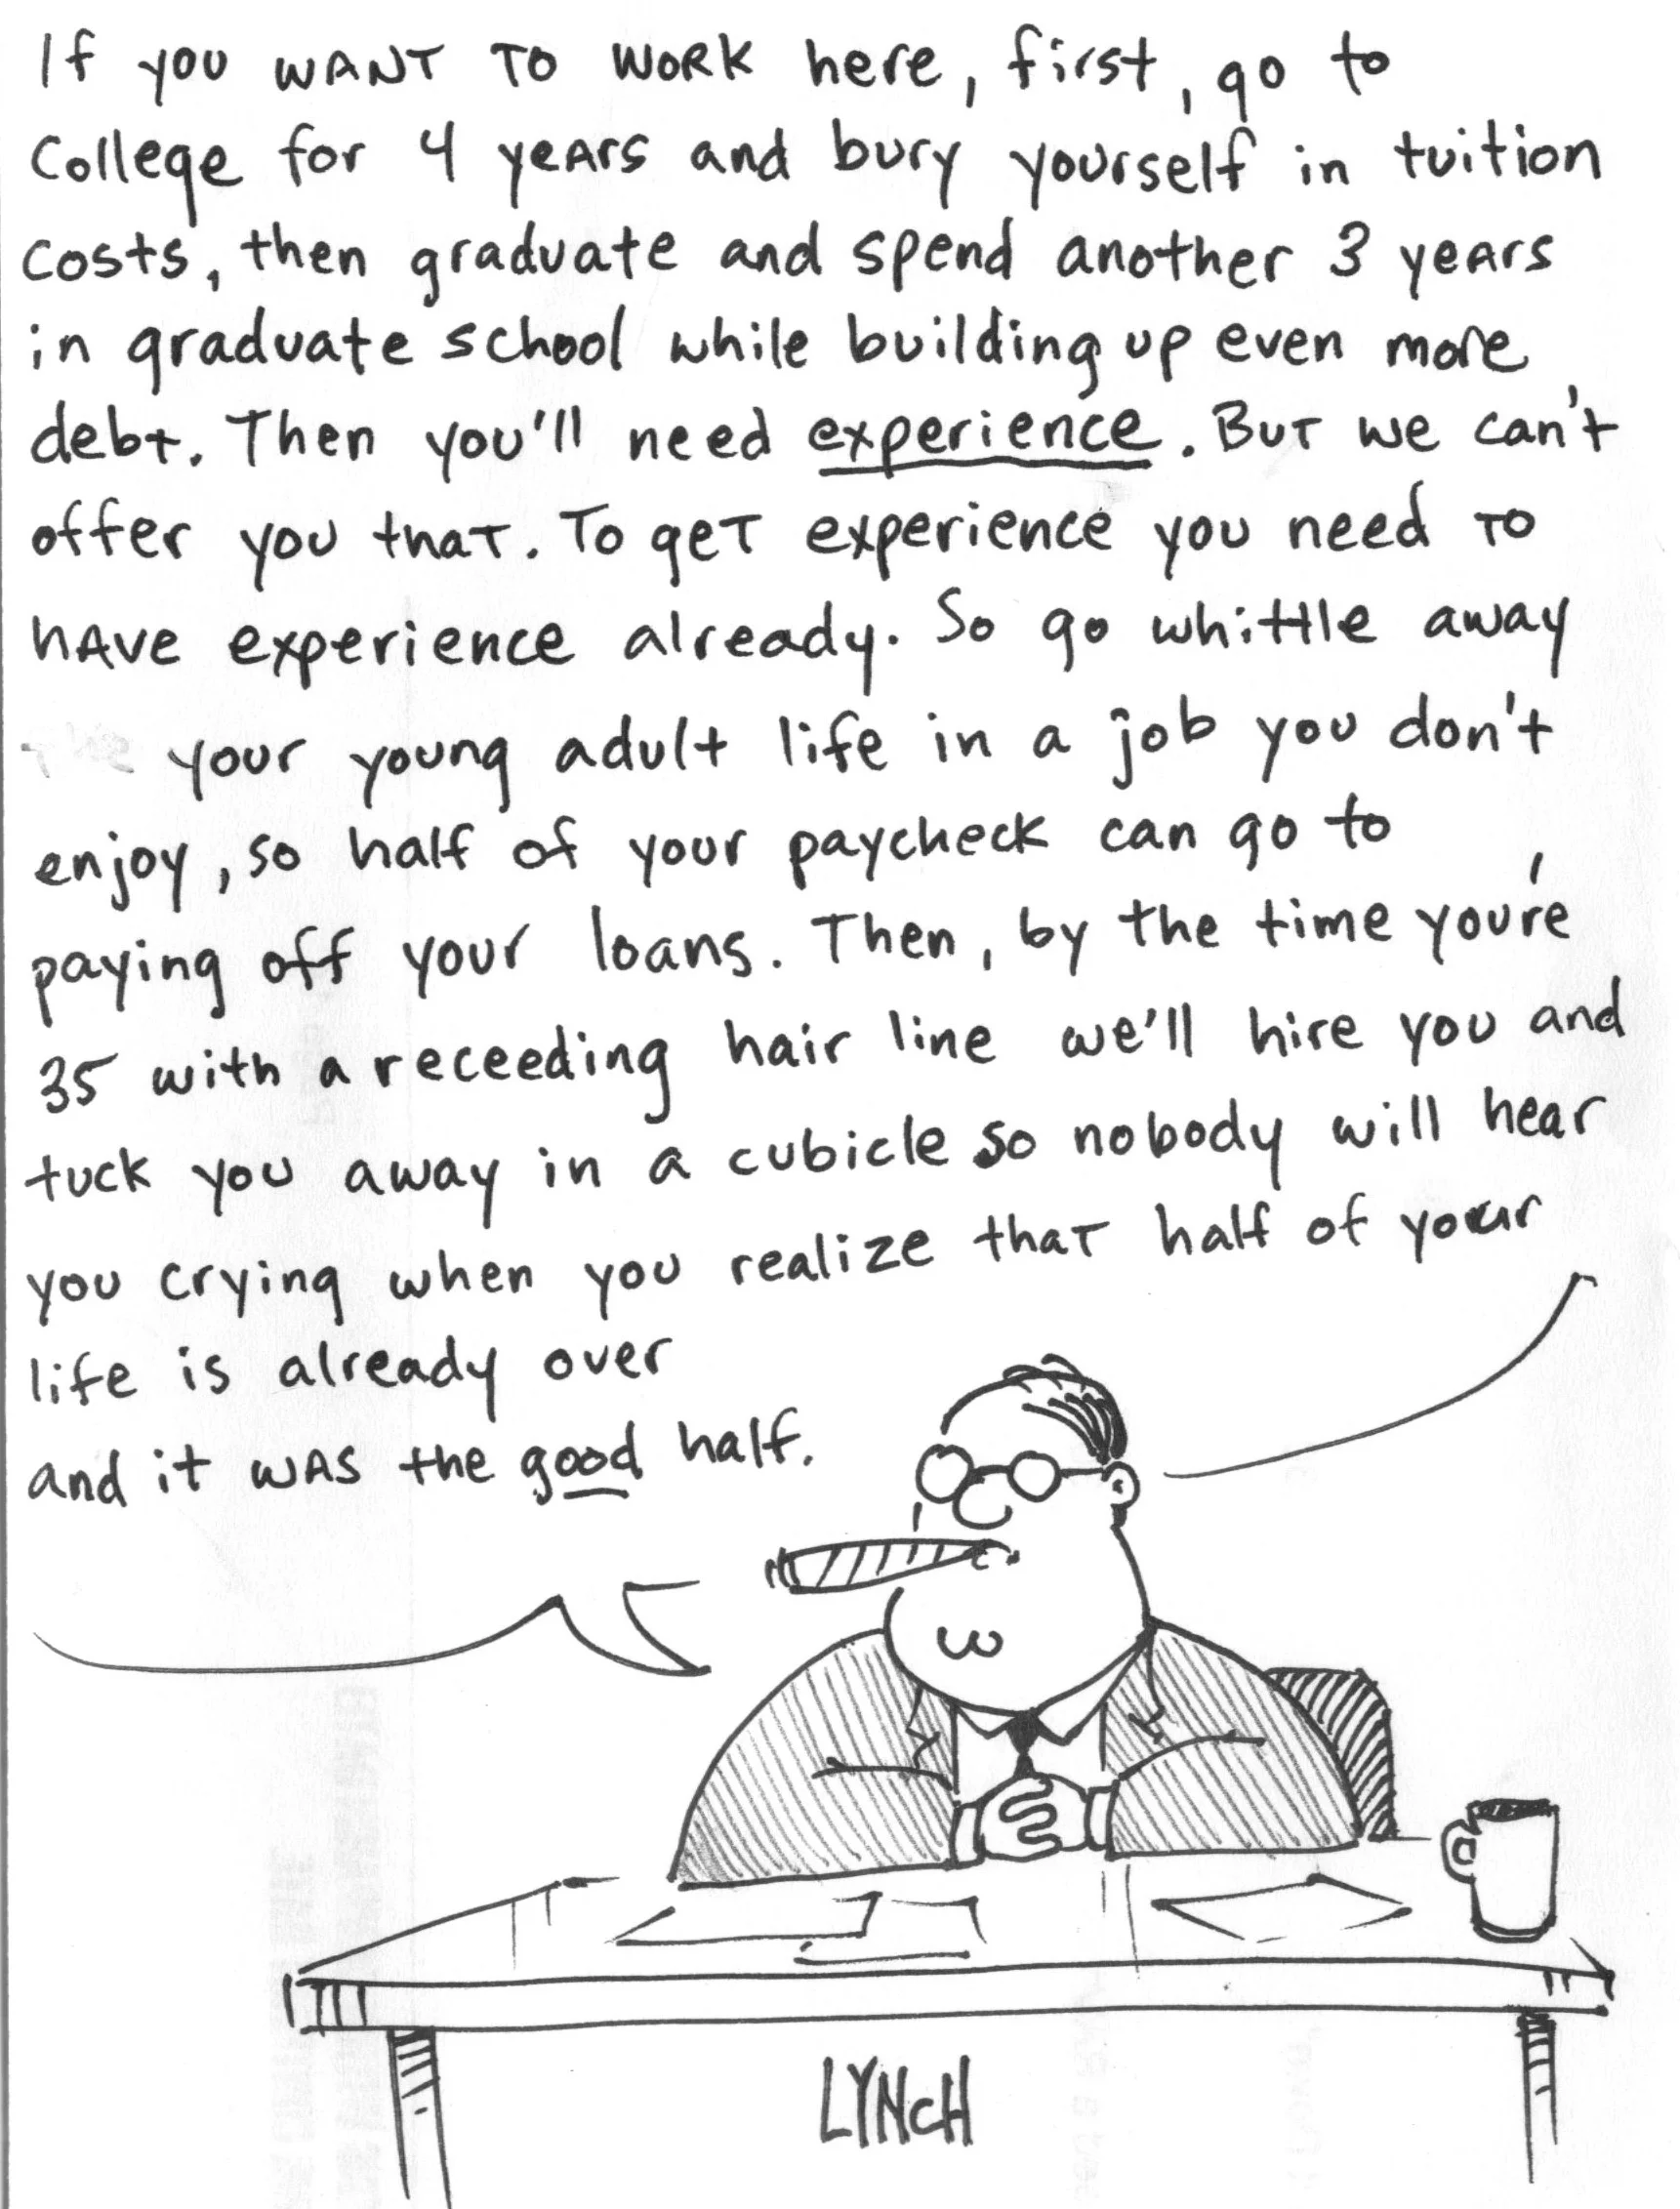 If you WANT TO WORK here, first, go to
College for 4 years and bury yourself in tuition
costs, then graduate and spend another 3 years
in graduate school while building up even more
debt. Then you'll need experience. But we can't
offer you that. To get experience you need to
have experience already. So go whittle away
your young adult life in a job you don't
enjoy, so half of your paycheck can go to
paying off your loans. Then, by the time you're
35 with a receeding hair line we'll hire you and
tuck you away in a cubicle so nobody will hear
you crying when you realize that half of your
life is already over
and it was the good half.
LYNCH